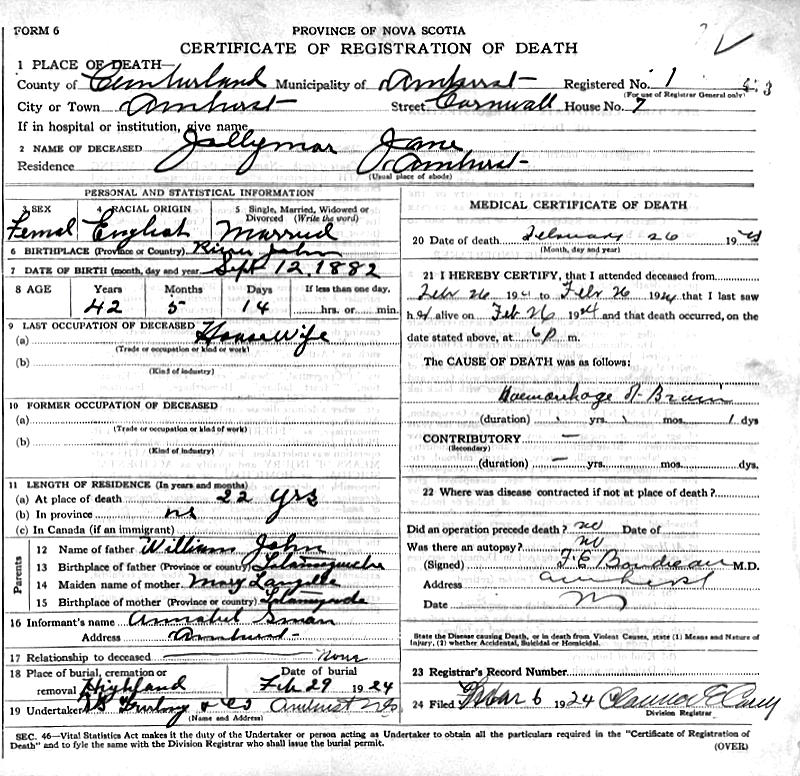 FORM 6
PROVINCE OF NOVA SCOTIA
CERTIFICATE OF REGISTRATION OF DEATH
1 PLACE OF DEATH—
County of Cumberland Municipality of Amherst Registered No. 1
(For use of Registrar General only)
City or Town Amherst Street Cornwall House No. 7
If in hospital or institution, give name
2 NAME OF DECEASED Jollymor Jane
Residence Amherst
(Usual place of abode)
PERSONAL AND STATISTICAL INFORMATION
3 SEX 4 RACIAL ORIGIN 5 Single, Married, Widowed or Divorced (Write the word)
Femal English Married
6 BIRTHPLACE (Province or Country) River John
7 DATE OF BIRTH (month, day and year) Sept 12, 1882
8 AGE Years Months Days If less than one day,
42 5 14 hrs. or min.
9 LAST OCCUPATION OF DECEASED
(a) House Wife
(Trade or occupation or kind of work)
(b)
(Kind of industry)
10 FORMER OCCUPATION OF DECEASED
(a)
(Trade or occupation or kind of work)
(b)
(Kind of industry)
11 LENGTH OF RESIDENCE (In years and months)
(a) At place of death 22 yrs
(b) In province ns
(c) In Canada (if an immigrant)
Parents
12 Name of father William John
13 Birthplace of father (Province or country)
14 Maiden name of mother Mary Langille
15 Birthplace of mother (Province or country)
16 Informant's name Annabel
Address Amherst
17 Relationship to deceased None
18 Place of burial, cremation or removal Highland
Date of burial Feb 29 1924
19 Undertaker & Co Amherst NS
(Name and Address)
MEDICAL CERTIFICATE OF DEATH
20 Date of death February 26 1924
(Month, day and year)
21 I HEREBY CERTIFY, that I attended deceased from
Feb 26 192 to Feb 26 1924 that I last saw
her alive on Feb 26 1924 and that death occurred, on the
date stated above, at 6 P m.
The CAUSE OF DEATH was as follows:
Haemorrhage of Brain
(duration) yrs. mos. 1 dys.
CONTRIBUTORY —
(Secondary)
(duration) — yrs. mos. dys.
22 Where was disease contracted if not at place of death?
Did an operation precede death? no Date of
Was there an autopsy? no
(Signed) F. E. Boudreau M.D.
Address Amherst
Date
State the Disease causing Death, or in death from Violent Causes, state (1) Means and Nature of
Injury, (2) whether Accidental, Suicidal or Homicidal.
23 Registrar's Record Number
24 Filed Mar 6 1924
Division Registrar
SEC. 46—Vital Statistics Act makes it the duty of the Undertaker or person acting as Undertaker to obtain all the particulars required in the "Certificate of Registration of
Death" and to fyle the same with the Division Registrar who shall issue the burial permit.
(OVER)